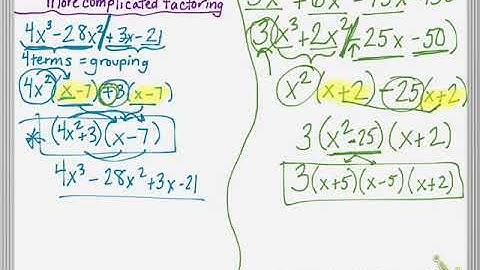 more complicated factoring
4x³-28x²+3x-21
4 terms = grouping
4x²(x-7)+3(x-7)
* (4x²+3)(x-7)
4x³-28x²+3x-21
3(x³+2x²-25x-50)
x²(x+2)-25(x+2)
3(x²-25)(x+2)
3(x+5)(x-5)(x+2)